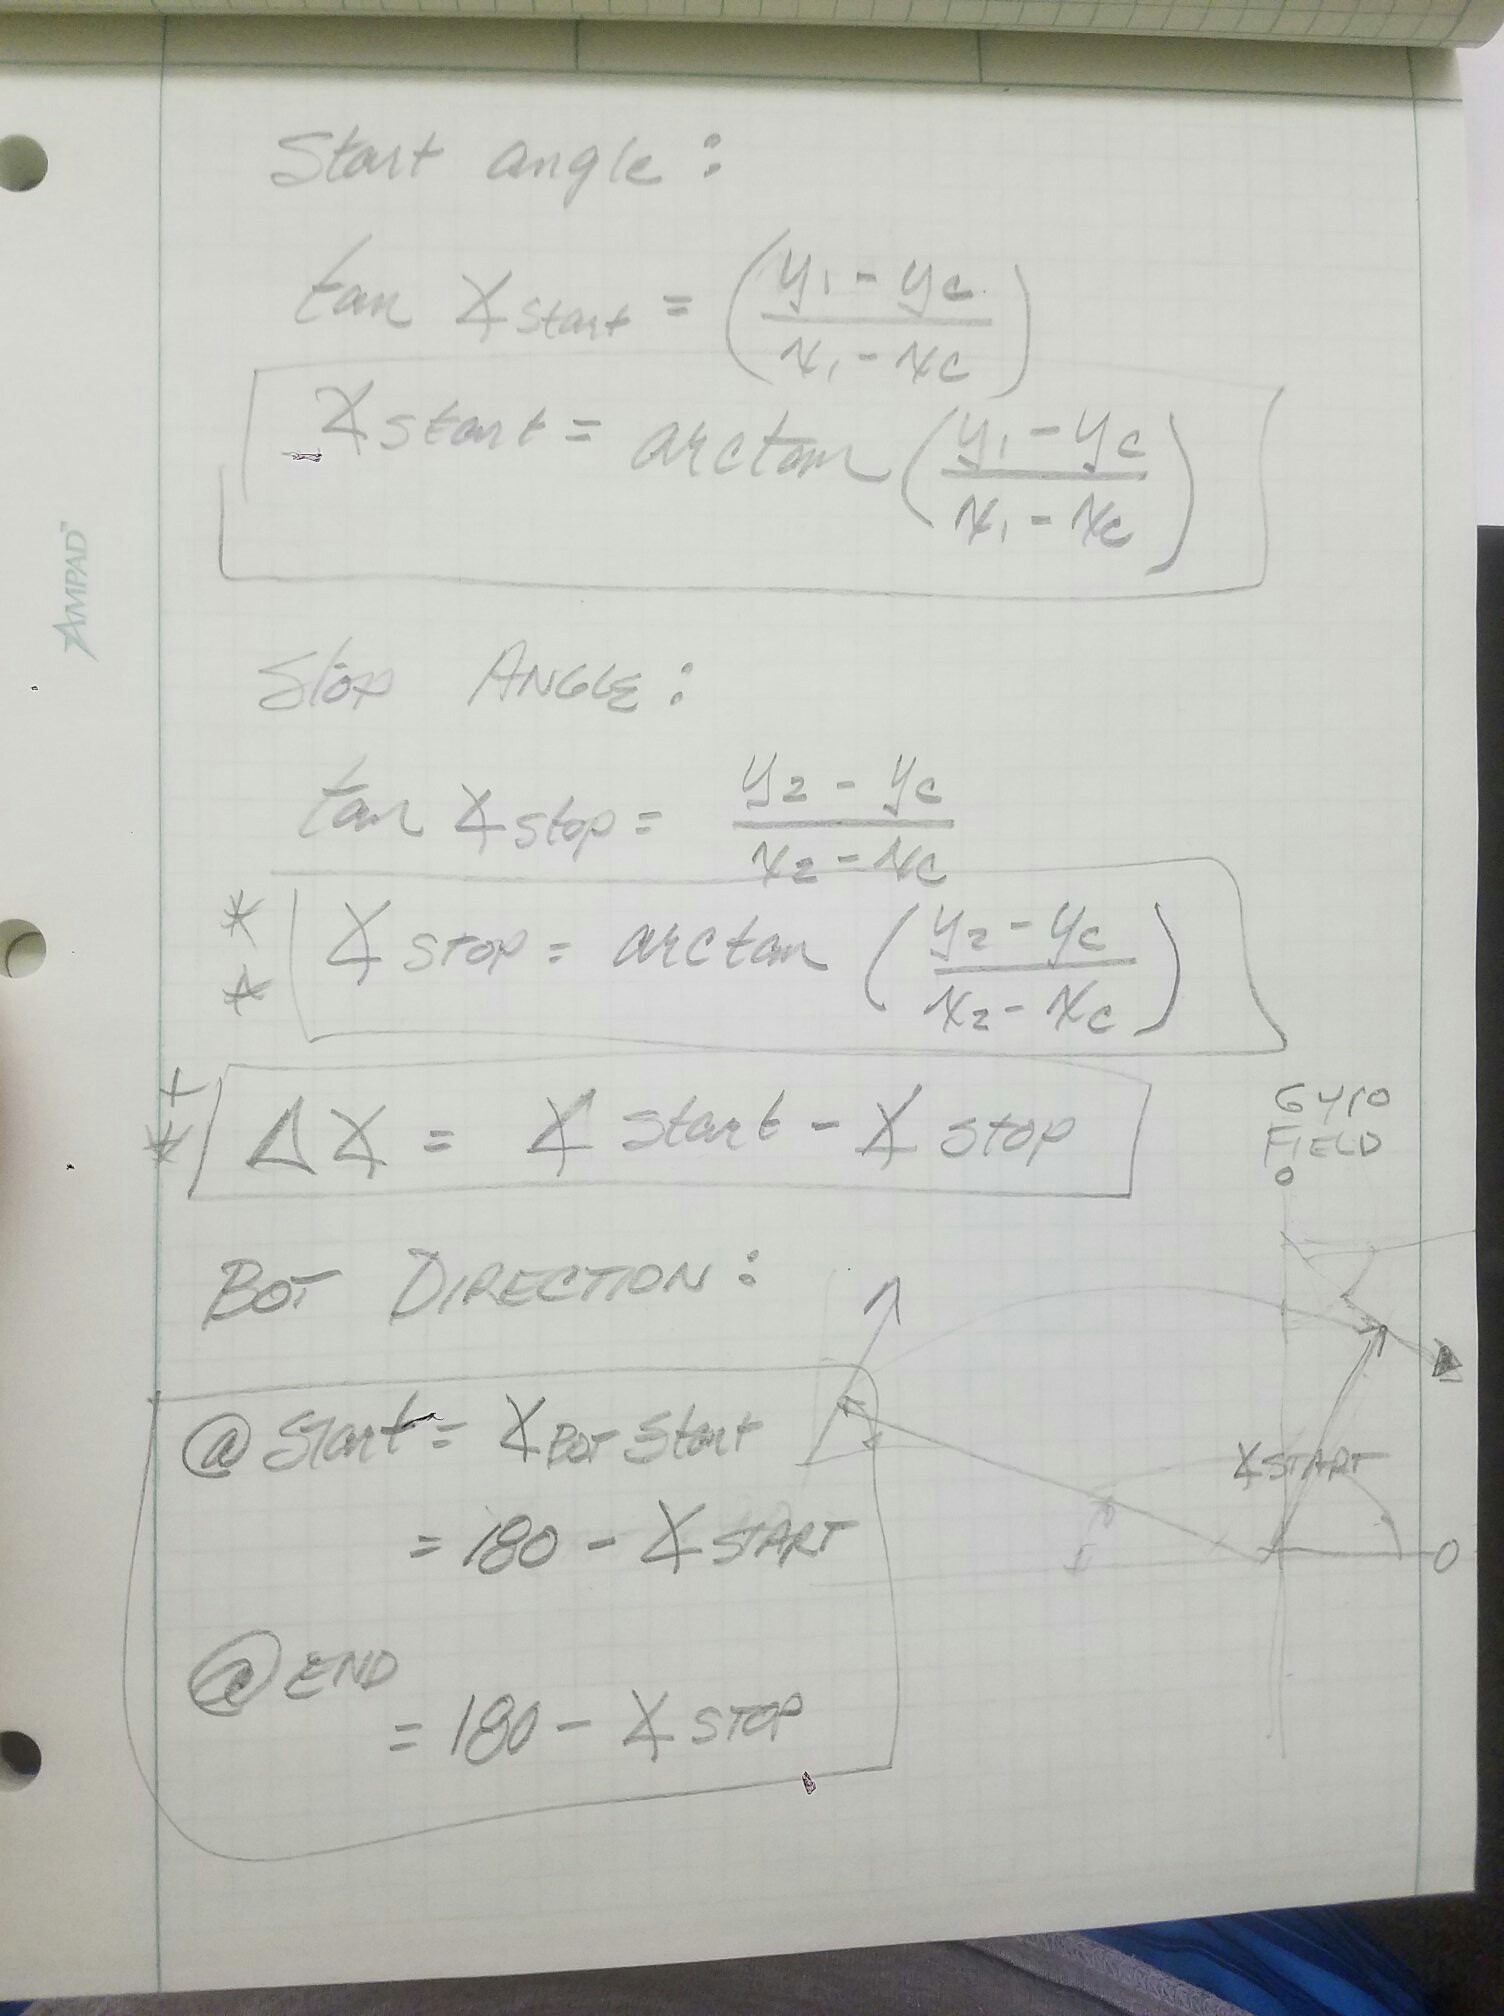 Start angle :
tan ∡ start = ( y1 - yc / x1 - xc )
∡ start = arctan ( y1 - yc / x1 - xc )
AMPAD™
Stop ANGLE :
tan ∡ stop = y2 - yc / x2 - xc
* * ∡ STOP = arctan ( y2 - yc / x2 - xc )
* * Δ∡ = ∡ start - ∡ stop
GYRO
FIELD
0
BOT DIRECTION :
@ Start = ∡ BOT Start
∡ START
= 180 - ∡ START
0
@ END
= 180 - ∡ STOP